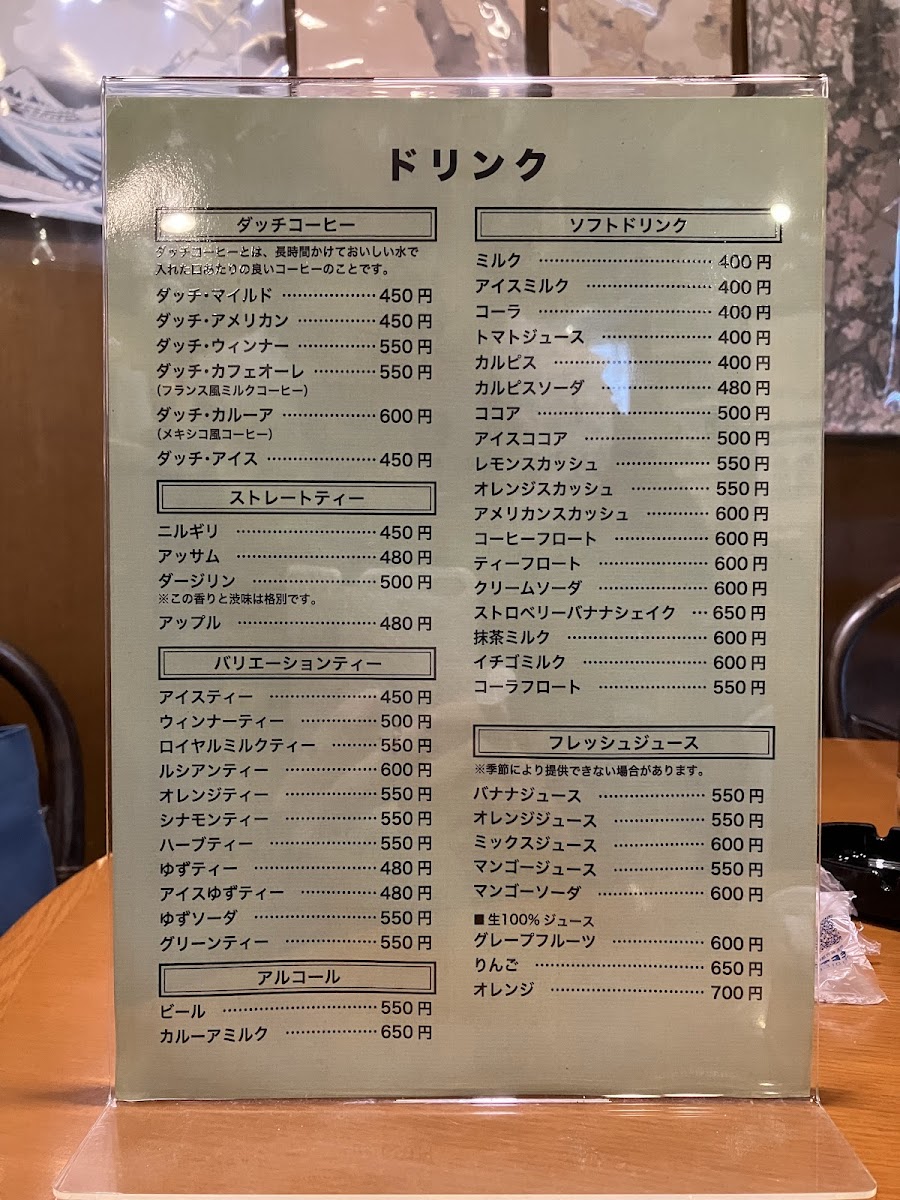 ドリンク
ダッチコーヒー
ダッチコーヒーとは、長時間かけておいしい水で
入れた口あたりの良いコーヒーのことです。
ダッチ・マイルド ………………450円
ダッチ・アメリカン ……………450円
ダッチ・ウィンナー ……………550円
ダッチ・カフェオーレ …………550円
(フランス風ミルクコーヒー)
ダッチ・カルーア ………………600円
(メキシコ風コーヒー)
ダッチ・アイス …………………450円
ストレートティー
ニルギリ ………………………450円
アッサム ………………………480円
ダージリン ……………………500円
※この香りと渋味は格別です。
アップル ………………………480円
バリエーションティー
アイスティー …………………450円
ウィンナーティー ……………500円
ロイヤルミルクティー ………550円
ルシアンティー ………………600円
オレンジティー ………………550円
シナモンティー ………………550円
ハーブティー …………………550円
ゆずティー ……………………480円
アイスゆずティー ……………480円
ゆずソーダ ……………………550円
グリーンティー ………………550円
アルコール
ビール …………………………550円
カルーアミルク ………………650円
ソフトドリンク
ミルク …………………………400円
アイスミルク …………………400円
コーラ …………………………400円
トマトジュース ………………400円
カルピス ………………………400円
カルピスソーダ ………………480円
ココア …………………………500円
アイスココア …………………500円
レモンスカッシュ ……………550円
オレンジスカッシュ …………550円
アメリカンスカッシュ ………600円
コーヒーフロート ……………600円
ティーフロート ………………600円
クリームソーダ ………………600円
ストロベリーバナナシェイク …650円
抹茶ミルク ……………………600円
イチゴミルク …………………600円
コーラフロート ………………550円
フレッシュジュース
※季節により提供できない場合があります。
バナナジュース ………………550円
オレンジジュース ……………550円
ミックスジュース ……………600円
マンゴージュース ……………550円
マンゴーソーダ ………………600円
■生100%ジュース
グレープフルーツ ……………600円
りんご …………………………650円
オレンジ ………………………700円